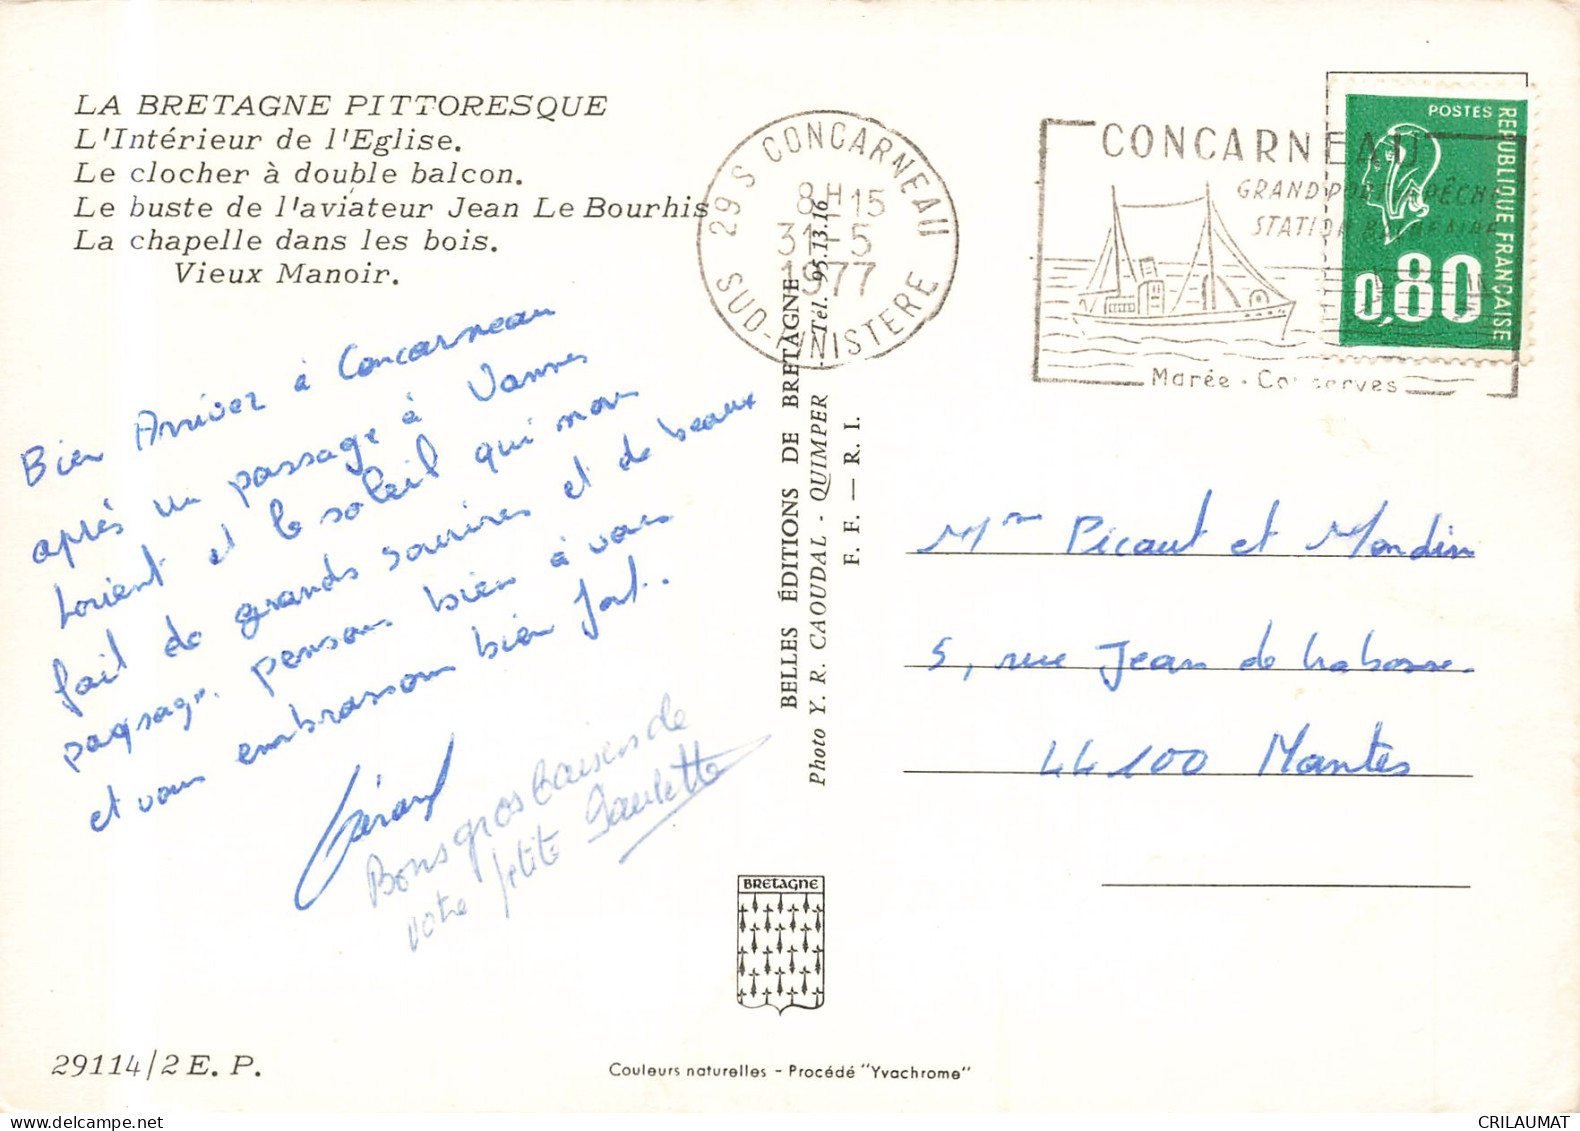 LA BRETAGNE PITTORESQUE
L'Intérieur de l'Eglise.
Le clocher à double balcon.
Le buste de l'aviateur Jean Le Bourhis
La chapelle dans les bois.
Vieux Manoir.
Bien Arrivez à Concarneau
après un passage à Vannes
Lorient et le soleil qui nous
fait de grands sourires et de beaux
paysage. pensons bien à vous
et vous embrassons bien fort..
Gérard
Bons gros baisers de
votre petite Paulette
29114/2 E. P.
29 S CONCARNEAU
8H15
31-5
1977
SUD-FINISTERE
CONCARNEAU
GRAND PORT PÊCHE
STATION BALNEAIRE
Marée - Conserves
POSTES
REPUBLIQUE FRANÇAISE
0,80
BELLES ÉDITIONS DE BRETAGNE
Photo Y. R. CAOUDAL - QUIMPER - Tél. 95.13.16
F. F. — R. I.
Picaut et Mondin
5, rue Jean de
44100 Nantes
BRETAGNE
Couleurs naturelles - Procédé "Yvachrome"
CRILAUMAT